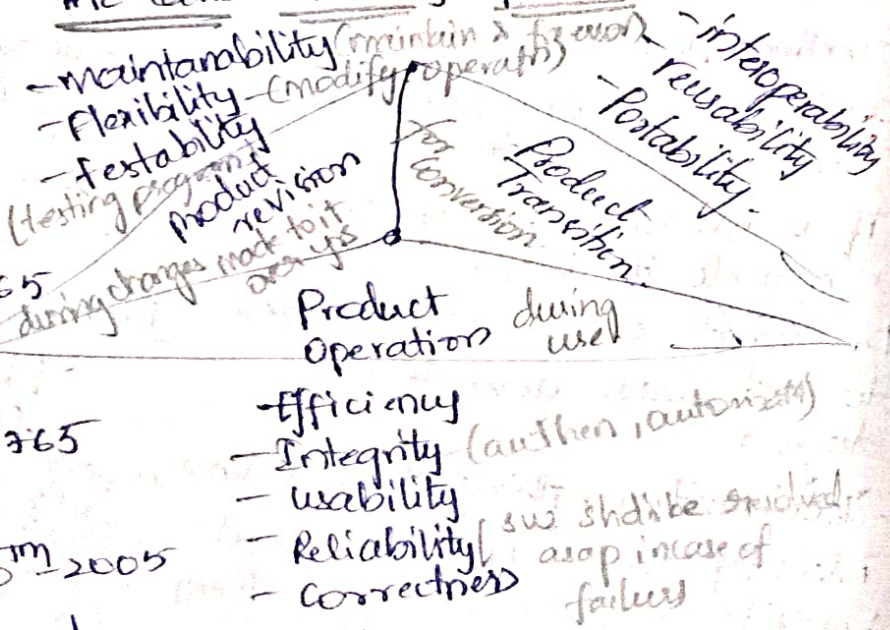 - maintanability (maintain & fix error)
- Flexibility - (modify operath)
- testability
(testing program)
product
revision
during changes made to it
over yrs
for
conversion
Product
Transition
- interoperability
- reusability
- Portability.
65
Product
Operation
during
use
- Efficiency
- Integrity (authen, autorizatn)
- usability
- Reliability ( sw shd be
asap in case of
failure
- Correctness
765
2005